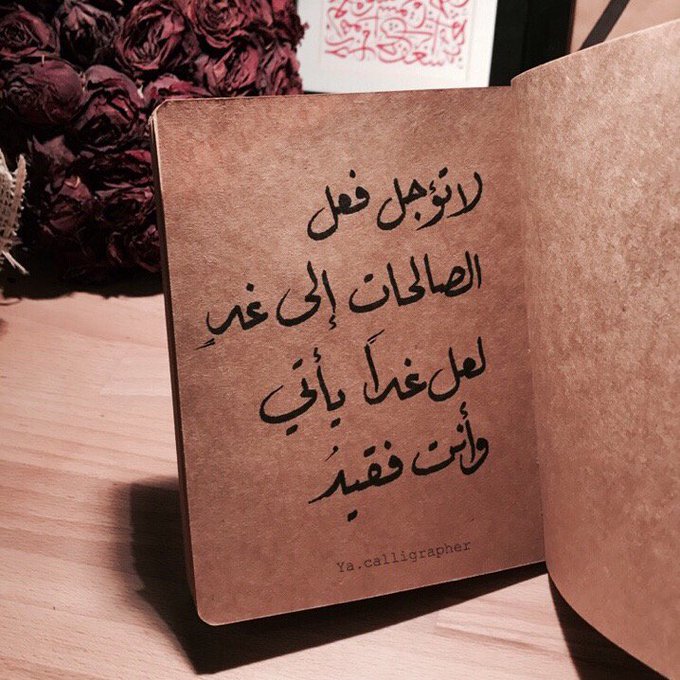 لا تؤجل فعل
الصالحات إلى غدٍ
لعل غداً يأتي
وأنت فقيدُ
Ya.calligrapher